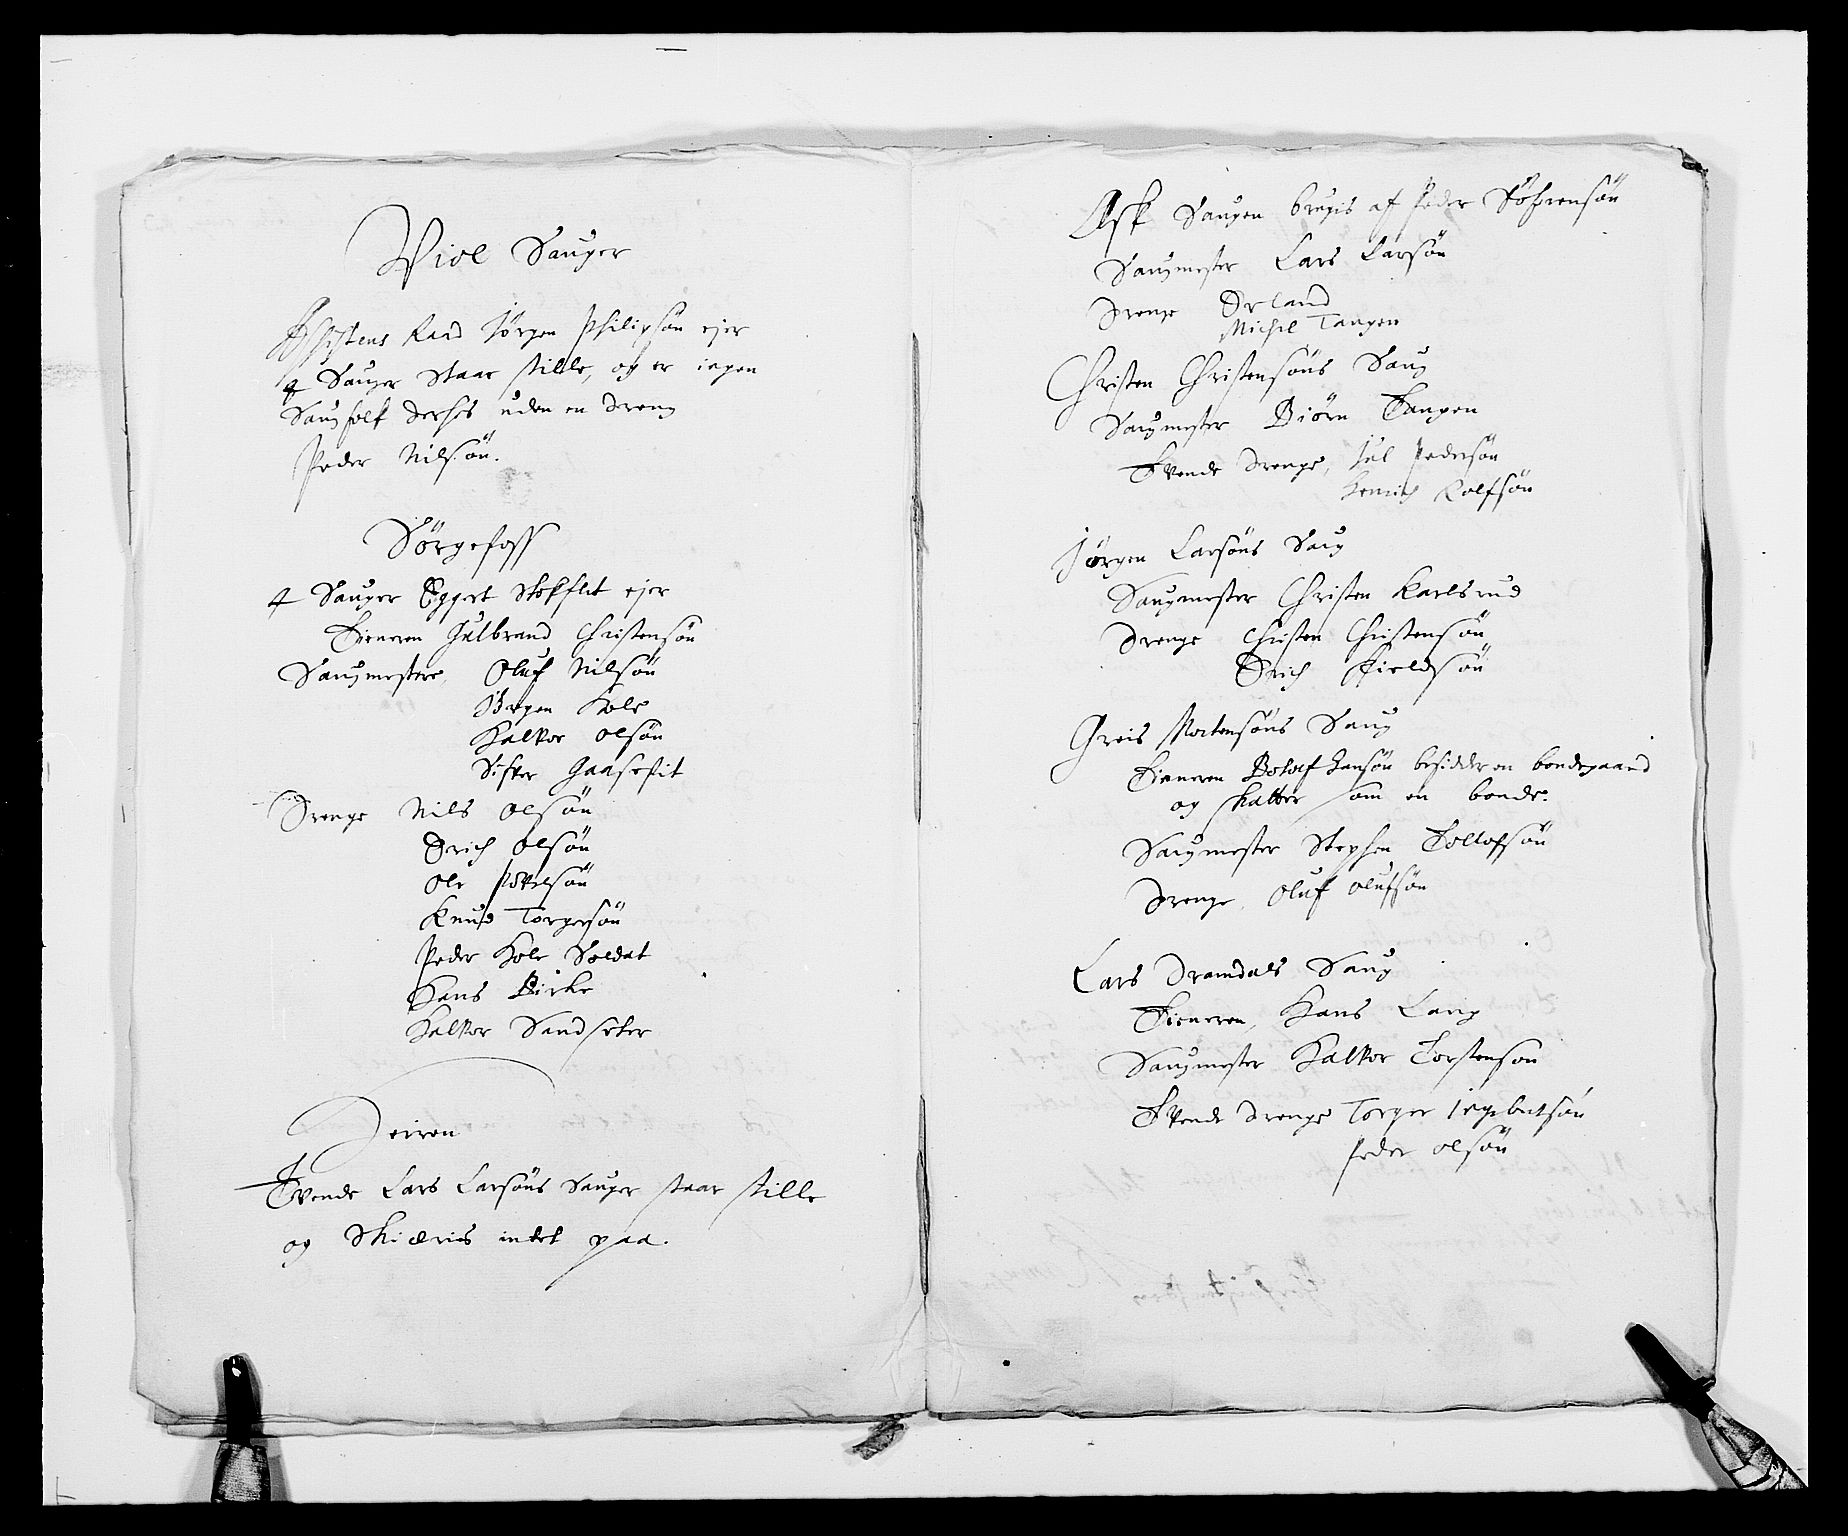 Viol Sauger
Assistens Raad Jörgen Philipsön ejer
4 Sauger staar stille, og er ingen
Saugfolk derhos uden en dreng
Peder Nilsön.
Sörgefoss
4 Sauger Eggert Stokflet ejer
Tieneren Gulbrand Christensön
Saugmestere Oluf Nilsön
Jörgen Hole
Halvor Olsön
Sifver Gaasefit
Drenge Nils Olsön
Erich Olsön
Ole Povelsön
Knud Torgersön
Peder Hole Soldat
Hans Birke
Halvor Sandseter
Heiren
Tvende Lars Larsöns Sauger staar stille
og Skiæris intet paa.
Ask Saugen brugis af Peder Söfrensön
Saugmester Lars Larsön
Drenge Erland
Michel Tangen
Christen Christensöns Saug
Saugmester Biörn Tangen
Tvende Drenge, Jul Pedersön
Henrich Rolfsön
Jörgen Larsöns Saug
Saugmester Christen Karlsrud
Drenge Christen Christensön
Erich Fieldsön
Greis Mortensöns Saug
Tieneren Hansön besidder en bondegaard
og skatter som en bonde.
Saugmester Stephen Tollofsön
Drenge, Oluf Olufsön
Lars Dramdals Saug
Tieneren, Hans Lang
Saugmester Halvor Torstenson
Tvende Drenge Torger Ingebretsön
Peder Olsön